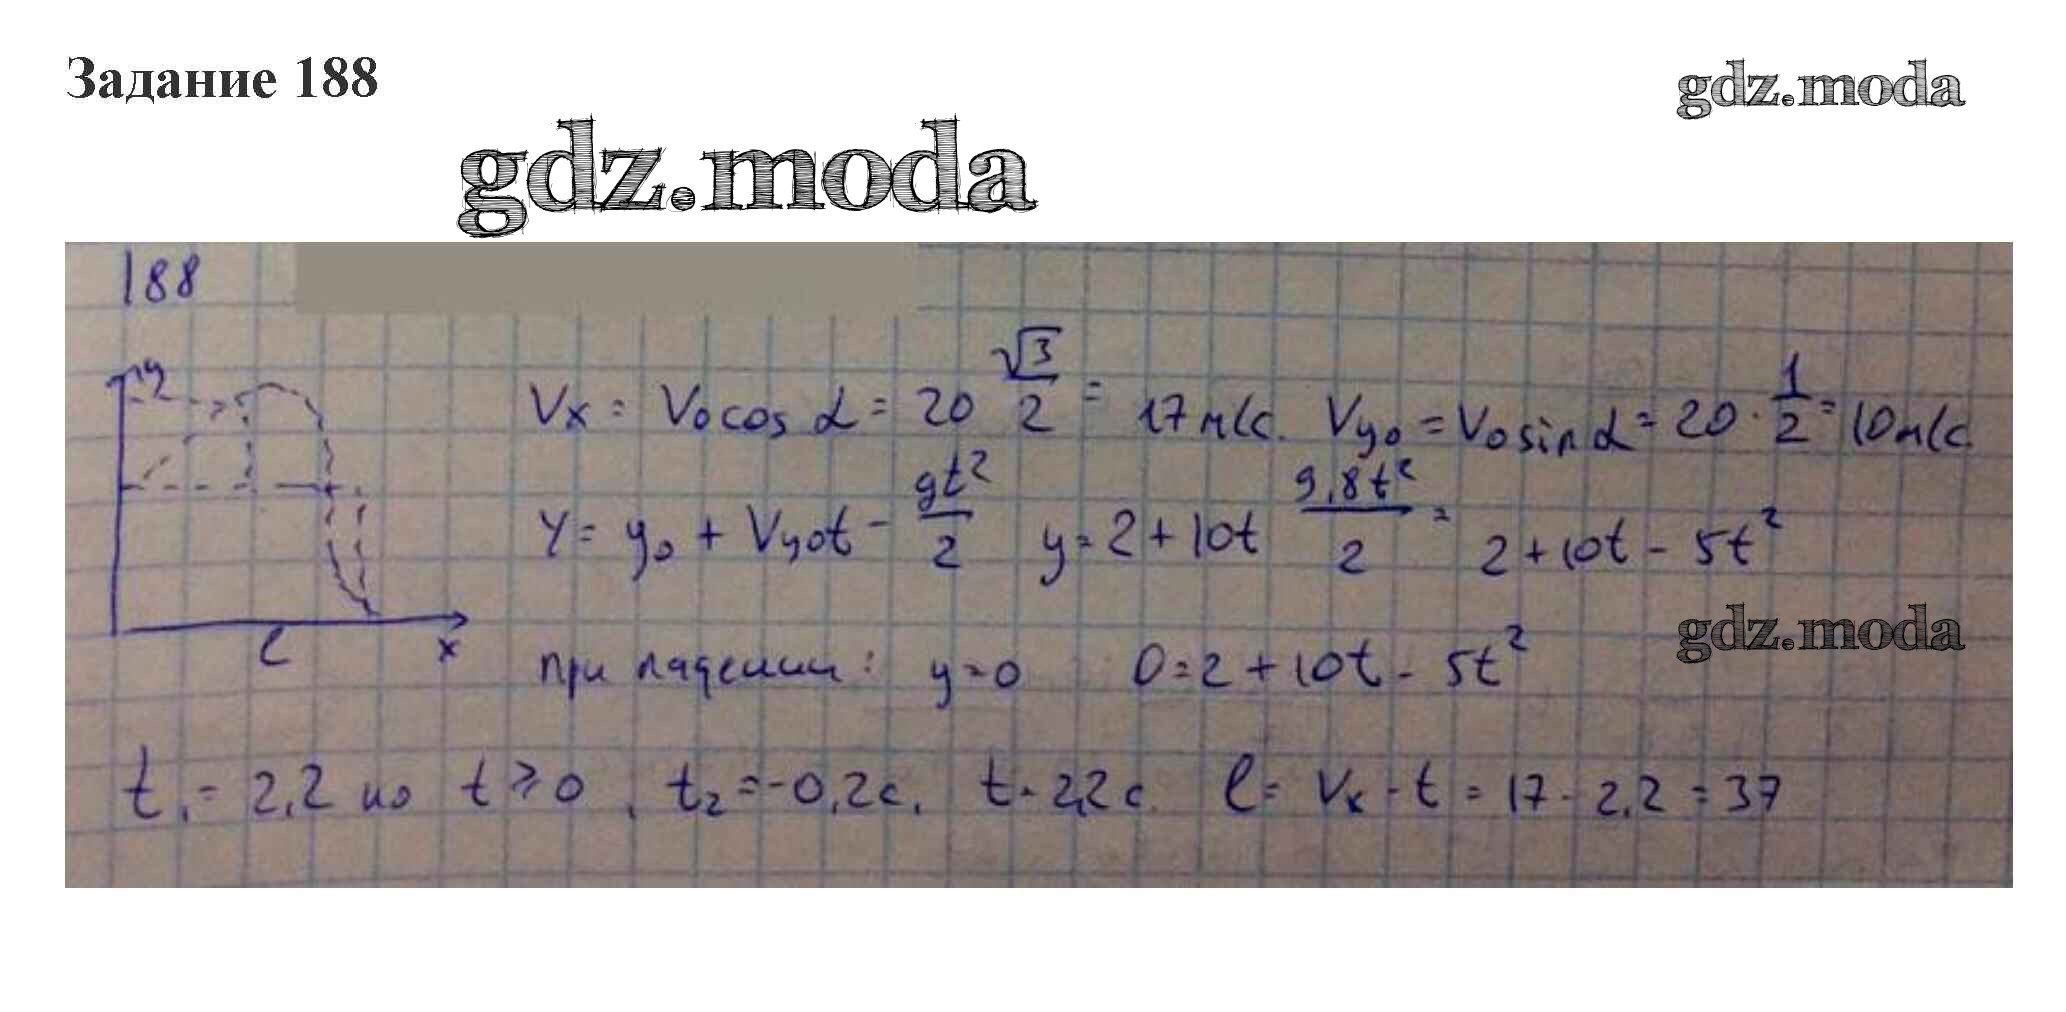 Задание 188
gdz.moda
gdz.moda
188
y
Vx = V0 cos α = 20 √3/2 = 17 м/с. Vy0 = V0 sin α = 20 · 1/2 = 10 м/с
Y = y0 + Vy0t - gt²/2 y = 2 + 10t 9,8t²/2 = 2 + 10t - 5t²
gdz.moda
l x
при падении: y = 0 0 = 2 + 10t - 5t²
t1 = 2,2 но t ≥ 0, t2 = -0,2 с. t = 2,2 с. l = Vx · t = 17 · 2,2 = 37